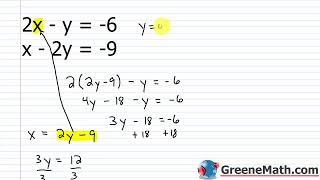 2x - y = -6
y =
x - 2y = -9
2(2y-9) - y = -6
4y - 18 - y = -6
3y - 18 = -6
+18 +18
x = 2y - 9
3y = 12
3 3
GreeneMath.com